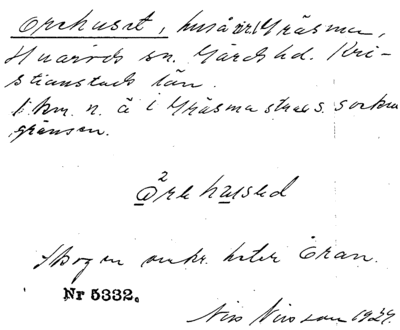 Örehuset, hus å Gräsma,
Huaröds sn. Gärds hd. Kri-
stianstads län.
1 km. n. å i Gräsma sträes socken
gränsen.
2
Örehused
Skogen omkr. heter Öran.
Nr 5332.
Nils Nilsson 1929.